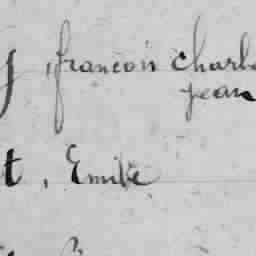 françois Charl
jean
t, Emile